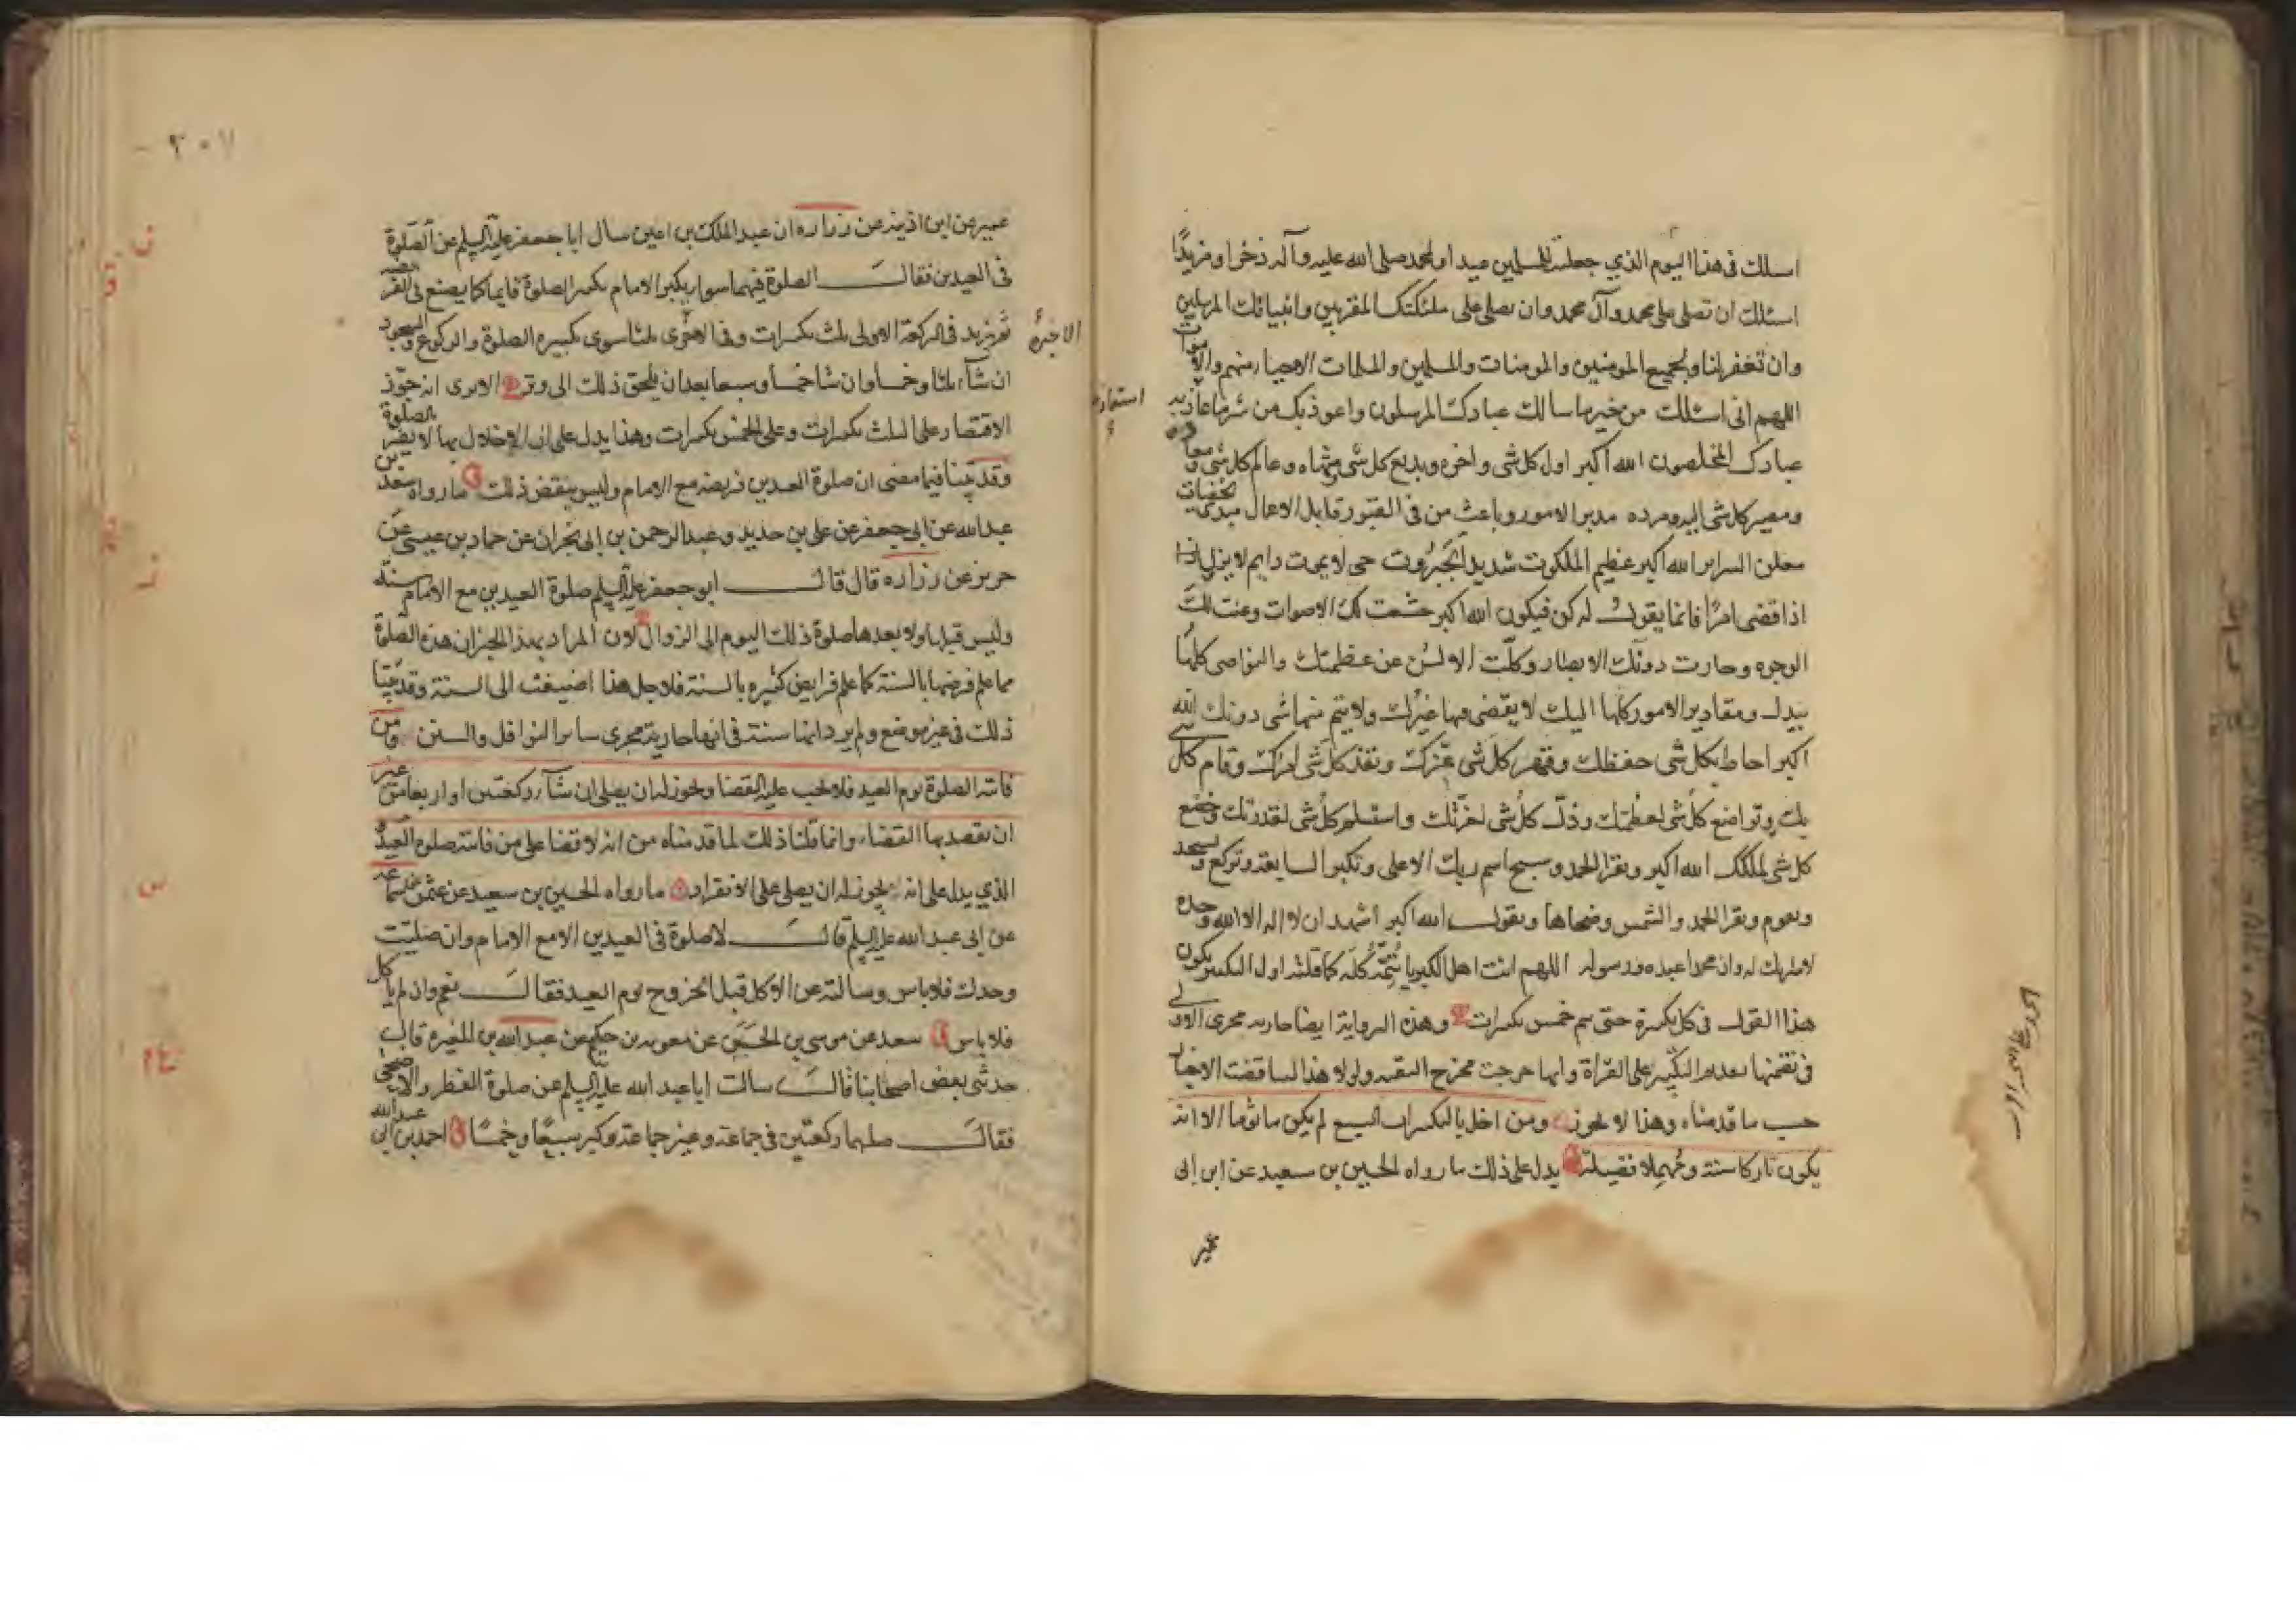 اسلك فى هذا اليوم الذي جعلته للمسلمين عيدا ولمحمد صلى الله عليه وآله ذخرا ومزيدًا
اسئلك ان تصلى على محمد وآل محمد وان تصلى على ملئكتك المقربين وانبيائك المرسلين
وان تغفر لنا ولجميع المومنين والمومنات والمسلمين والمسلمات الاحياء منهم والاموات
اللهم انى اسئلك من خير ما سالك عبادك المرسلون واعوذ بك من شر ما عاذ به
استعاذ
عبادك المخلصون الله اكبر اول كل شى واخره وبديع كل شى ومنتهاه وعالم كل شى ومعاده
ومصير كل شى اليه ومرده مدبر الامور وباعث من فى القبور قابل الاعمال مبدئ الخفيات
معلن السراير الله اكبر عظيم الملكوت شديد الجبروت حى لا يموت دايم لا يزول
اذا قضى امرًا فانما يقول له كن فيكون الله اكبر خشعت لك الاصوات وعنت لك
الوجوه وحارت دونك الابصار وكلّت الالسن عن عظمتك والنواصى كلها
بيدك ومقادير الامور كلها اليك لا يقضى فيها غيرك ولا يتم منها شى دونك الله
اكبر احاط بكل شى حفظك وقهر كل شى عزك ونفذ كل شى امرك وقام كل
بك وتواضع كل شى لعظمتك وذلّ كل شى لعزتك واستسلم كل شى لقدرتك وخضع
كل شى لملكك الله اكبر وتقرا الحمد وسبح اسم ربك الاعلى وتكبر السابعة وتركع وتسجد
وتقوم وتقرا الحمد والشمس وضحاها وتقول الله اكبر اشهد ان لا اله الا الله وحده
لا شريك له وان محمدا عبده ورسوله اللهم انت اهل الكبريا تتمّه كله كما قلته اول التكبير يكون
هذا القول فى كل تكبيرة حتى يتم خمس تكبيرات وهذه الرواية ايضا جاريه مجرى الاولى
فى تضمنها تقديم التكبير على القراة وانها خرجت مخرج التقيه ولولا هذا لتناقضت الاخبار
حسب ما قدمناه وهذا لا يجوز ومن اخل بالتكبيرات السبع لم يكن ماثوما الا انه
يكون تاركا سنة ومهملا فضيلة يدل على ذلك ما رواه الحسين بن سعيد عن ابن ابى
عمير
عمير عن ابن اذينه عن زراره ان عبد الملك بن اعين سال ابا جعفر عليه السلم عن الصلوة
فى العيدين فقال الصلوة فيهما سوا يكبر الامام تكبير الصلوة قايما كما يصنع فى الفريضه
ثم يزيد فى الركعة الاولى ثلث تكبيرات وفى الاخرى ثلثا سوى تكبيره الصلوة والركوع والسجود
الاخيرة
ان شاء ثلثا وخمسا وان شا خمسا وسبعا بعد ان يلحق ذلك الى وتر الا ترى انه جوّز
الاقتصار على الثلث تكبيرات وعلى الخمس تكبيرات وهذا يدل على ان الاخلال بها لا يضر الصلوة
وقد بيّنا فيما مضى ان صلوة العيدين فريضه مع الامام وليس ينقض ذلك ما رواه سعد بن
عبد الله عن ابى جعفر عن على بن حديد وعبد الرحمن بن ابى نجران عن حماد بن عيسى عن
حريز عن زراره قال قال ابو جعفر عليه السلم صلوة العيدين مع الامام سنة
وليس قبلها ولا بعدها صلوة ذلك اليوم الى الزوال لان المراد بهذا الخبر ان هذه الصلوة
مما علم فرضها بالسنة كما علم فرايض كثيره بالسنة فلاجل هذا اضيفت الى السنة وقد بيّنا
ذلك فى غير موضع ولم يرد انها سنة فى انها جارية مجرى ساير النوافل والسنن ومن
فاتته الصلوة يوم العيد فلا يجب عليه القضا ويجوز له ان يصلى ان شاء ركعتين او اربعا من غير
ان يقصد بها القضاء وانما قلنا ذلك لما قدمناه من انه لا قضا على من فاتته صلوة العيد
الذي يدل على انه يجوز له ان يصلى على الانفراد ما رواه الحسين بن سعيد عن عثمن عن سماعه
عن ابى عبد الله عليه السلم قال لا صلوة فى العيدين الا مع الامام وان صليت
وحدك فلا باس وسالته عن الاكل قبل الخروج يوم العيد فقال نعم وان لم ياكل
فلا باس سعد عن موسى بن الحسن عن معويه بن حكيم عن عبد الله بن المغيره قال
حدثنى بعض اصحابنا قال سالت ابا عبد الله عليه السلم عن صلوة الفطر والاضحى
فقال صلهما ركعتين فى جماعة وغير جماعة وكبر سبعًا وخمسًا احمد بن ابى عبد الله